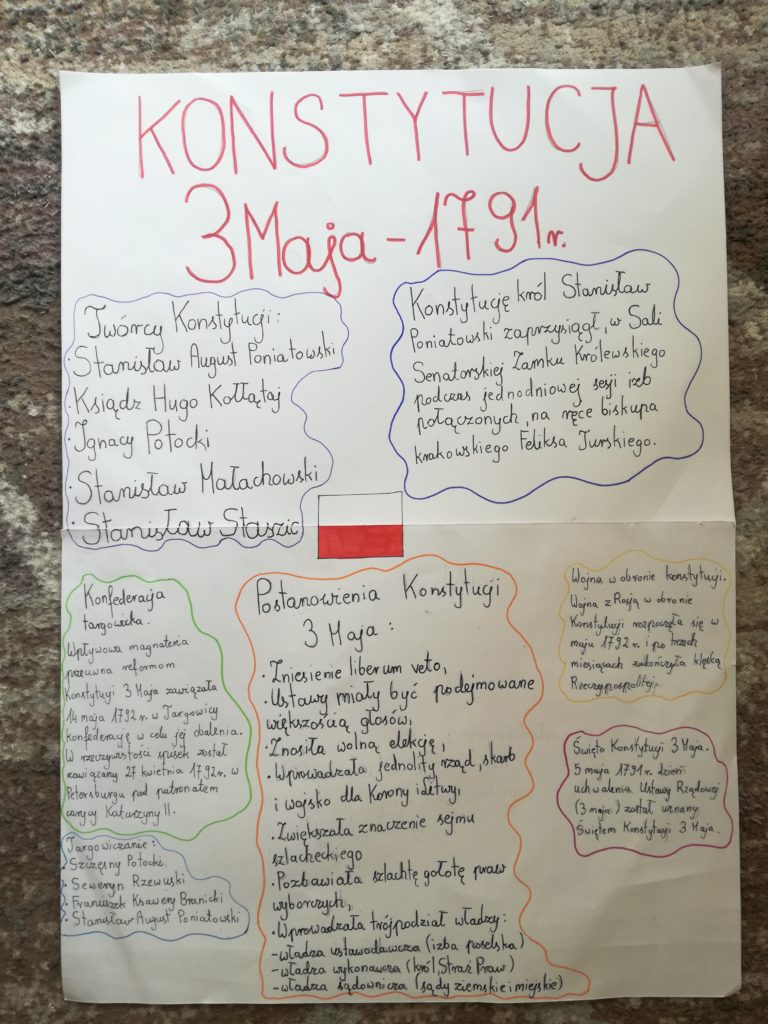 KONSTYTUCJA
3 Maja - 1791 r.
Twórcy Konstytucji:
· Stanisław August Poniatowski
· Ksiądz Hugo Kołłątaj
· Ignacy Potocki
· Stanisław Małachowski
· Stanisław Staszic
Konstytucję król Stanisław
Poniatowski zaprzysiągł, w Sali
Senatorskiej Zamku Królewskiego
podczas jednodniowej sesji izb
połączonych, na ręce biskupa
krakowskiego Feliksa Turskiego.
Konfederacja
targowicka.
Wpływowa magnateria
przeciwna reformom
Konstytucji 3 Maja zawiązała
14 maja 1792 r. w Targowicy
Konfederację w celu jej obalenia.
W rzeczywistości spisek został
zawiązany 27 kwietnia 1792 r. w
Petersburgu pod patronatem
carycy Katarzyny II.
Targowiczanie:
· Szczęsny Potocki
· Seweryn Rzewuski
· Franciszek Ksawery Branicki
· Stanisław August Poniatowski
Postanowienia Konstytucji
3 Maja:
· Zniesienie liberum veto,
· Ustawy miały być podejmowane
większością głosów,
· Znosiła wolną elekcję,
· Wprowadzała jednolity rząd, skarb
i wojsko dla Korony i Litwy,
· Zwiększała znaczenie sejmu
szlacheckiego
· Pozbawiała szlachtę gołotę praw
wyborczych,
· Wprowadzała trójpodział władzy:
- władza ustawodawcza (izba poselska)
- władza wykonawcza (król, Straż Praw)
- władza sądownicza (sądy ziemskie i miejskie)
Wojna w obronie konstytucji.
Wojna z Rosją w obronie
Konstytucji rozpoczęła się w
maju 1792 r. i po trzech
miesiącach zakończyła klęską
Rzeczypospolitej.
Święto Konstytucji 3 Maja.
5 maja 1791 r. dzień
uchwalenia Ustawy Rządowej
(3 maja) został uznany
Świętem Konstytucji 3 Maja.